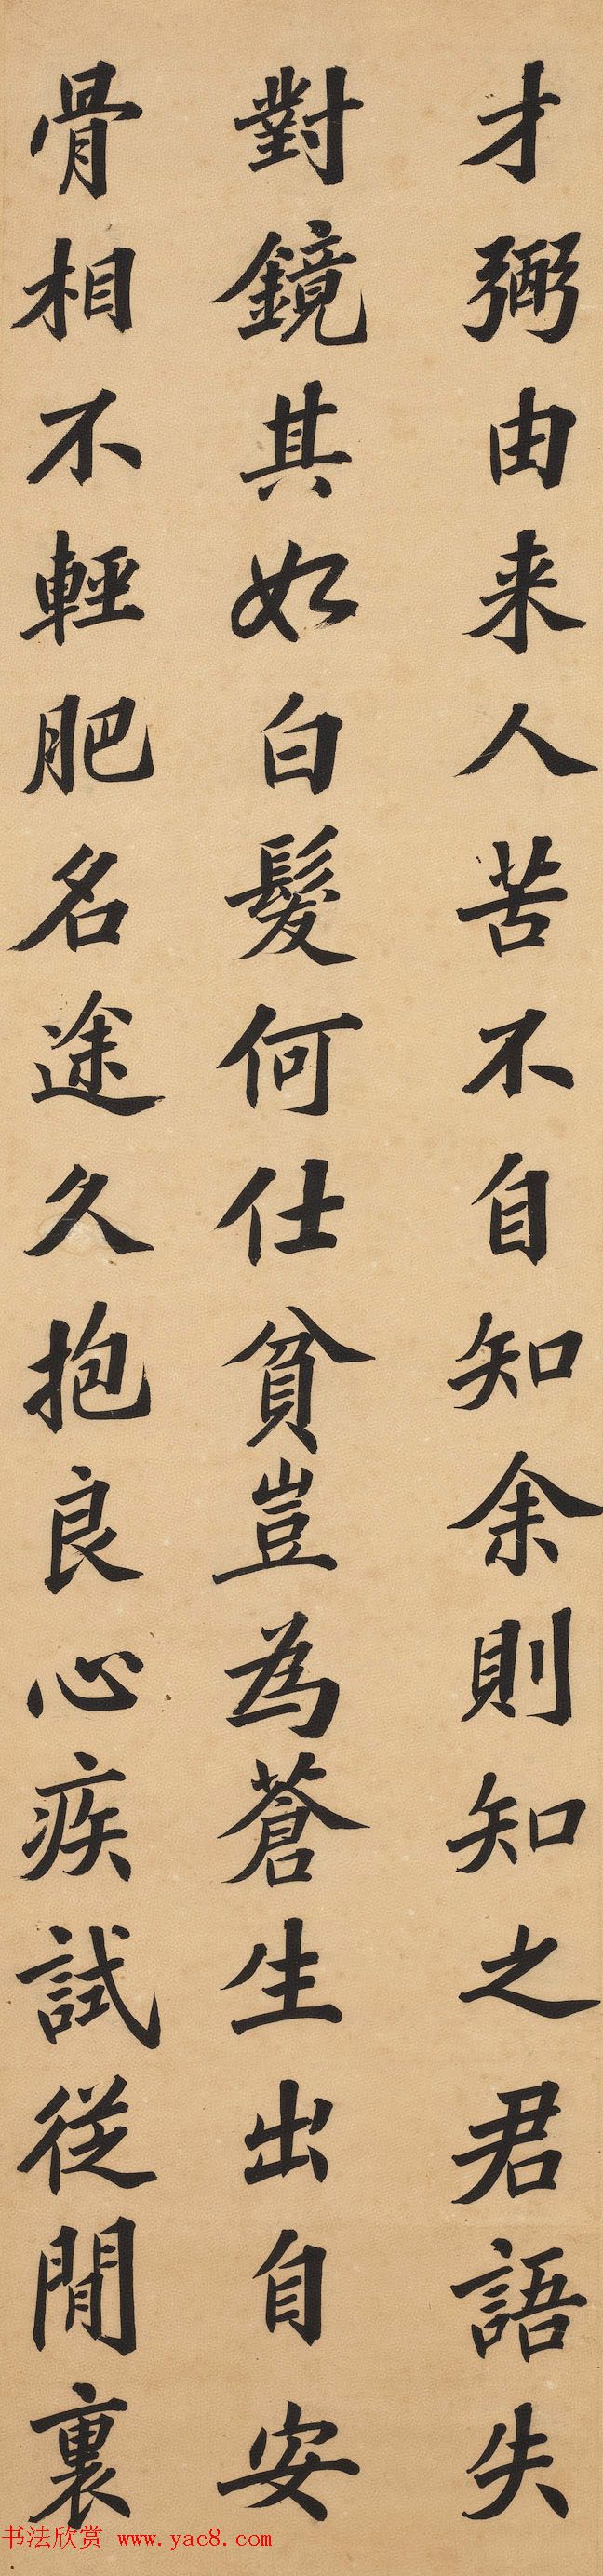 才弼由来人苦不自知余則知之君語失
對鏡其如白髮何仕貧豈為蒼生出自安
骨相不輕肥名途久抱良心疾試從閒裏
书法欣赏 www.yac8.com